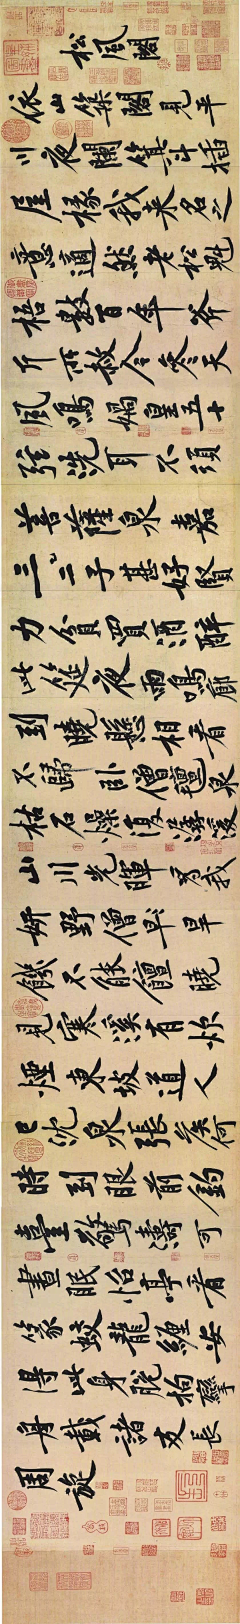 松風閣
依山築閣見平
川夜闌箕斗插
屋椽我來名之
意適然老松魁
梧數百年斧
斤所赦今參天
風鳴媧皇五十
弦洗耳不須
菩薩泉嘉
二三子甚好賢
力貧買酒醉
此筵夜雨鳴廊
到曉懸相看
不歸臥僧氈泉
枯石燥復潺湲
山川光暉為我
妍野僧早旱
饑不能饘曉
見寒溪有炊
煙東坡道人
已沈泉張侯何
時到眼前釣
臺驚濤可
晝眠怡亭看
篆蛟龍纏安
得此身脫拘攣
舟載諸友長
周旋